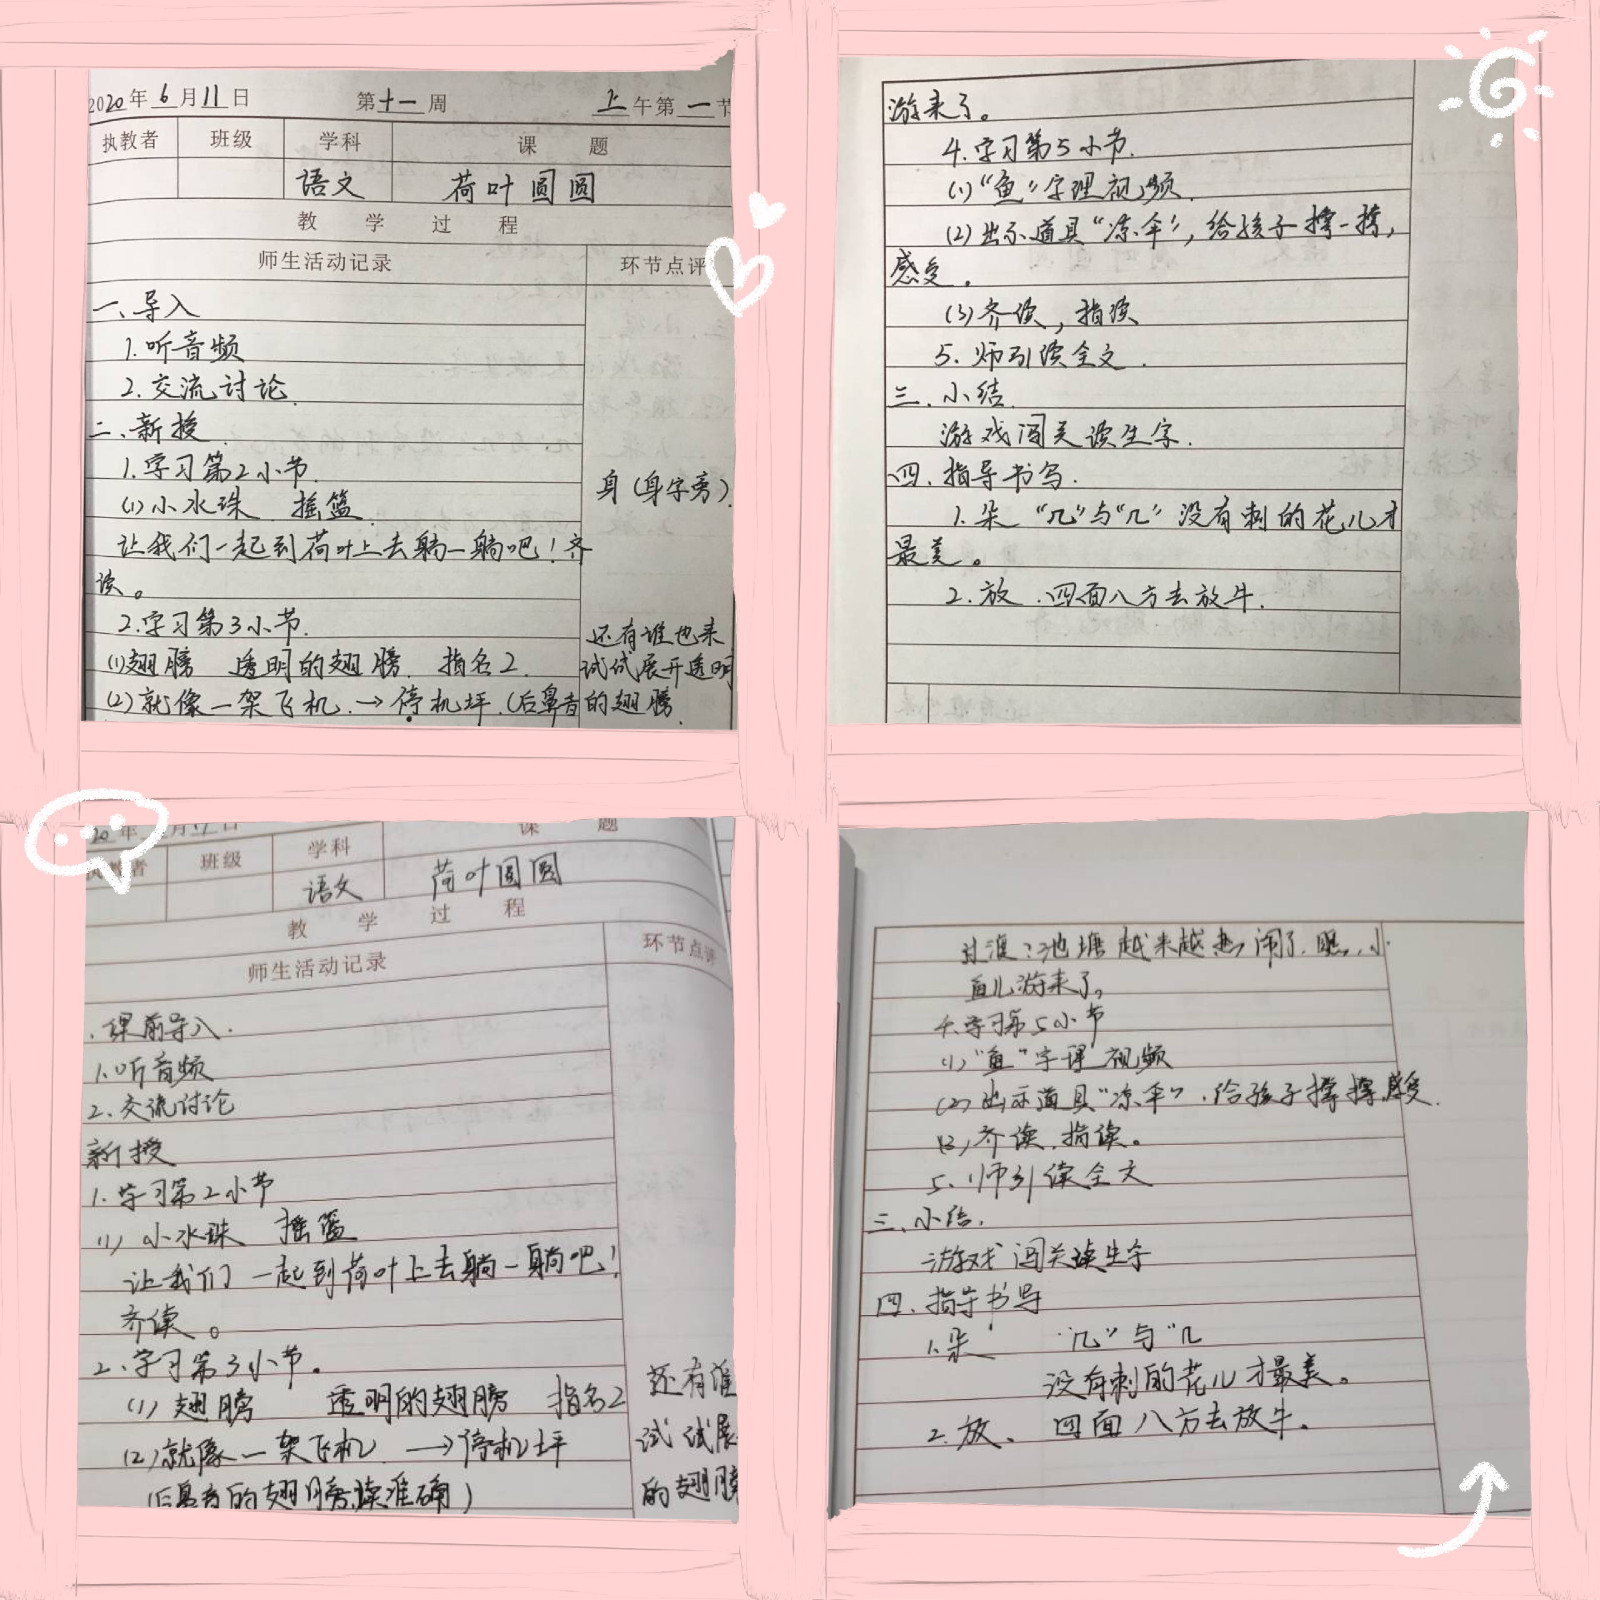 2020年6月11日 第十一周 上午第一节
执教者 班级 学科 课题
语文 荷叶圆圆
教学过程
师生活动记录 环节点评
一、导入
1.听音频
2.交流讨论.
二、新授.
1.学习第2小节.
(1)小水珠 摇篮.
身(身字旁).
让我们一起到荷叶上去躺一躺吧!齐
读。
2.学习第3小节.
还有谁也来
(1)翅膀 透明的翅膀. 指名2.
试试展开透明
(2)就像一架飞机.→停机坪.(后鼻音
的翅膀.
游来了。
4.学习第5小节.
(1)“鱼”字理视频.
(2)出示道具“凉伞”,给孩子撑一撑,
感受。
(3)齐读,指读
5.师引读全文.
三、小结.
游戏闯关读生字.
四、指导书写.
1.朵 “几”与“几” 没有刺的花儿才
最美。
2.放.四面八方去放牛.
20年 月11日
课题
执教者 班级 学科
语文 荷叶圆圆
教学过程
师生活动记录 环节点评
.课前导入.
1.听音频
2.交流讨论
新授
1.学习第2小节
(1)小水珠 摇篮
让我们一起到荷叶上去躺一躺吧!
齐读。
2.学习第3小节。
(1)翅膀 透明的翅膀 指名2
还有谁
(2)就像一架飞机 →停机坪
试试展
(后鼻音的翅膀读准确)
的翅膀
过渡:池塘越来越热闹了.瞧,小
鱼儿游来了,
4.学习第5小节
(1)“鱼”字理视频
(2)出示道具“凉伞”.给孩子撑撑感受.
(3)齐读.指读。
5.师引读全文
三、小结.
游戏闯关读生字
四、指导书写
1.朵 “几”与“几
没有刺的花儿才最美。
2.放、四面八方去放牛。